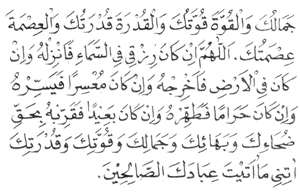 جَمَالُكَ وَالْقُوَّةَ قُوَّتُكَ وَالْقُدْرَةَ قُدْرَتُكَ وَالْعِصْمَةَ
عِصْمَتُكَ. اَللّٰهُمَّ اِنْ كَانَ رِزْقِى فِى السَّمَآءِ فَأَنْزِلْهُ وَاِنْ
كَانَ فِى اْلاَرْضِ فَأَخْرِجْهُ وَاِنْ كَانَ مُعْسِرًا فَيَسِّرْهُ
وَاِنْ كَانَ حَرَامًا فَطَهِّرْهُ وَاِنْ كَانَ بَعِيْدًا فَقَرِّبْهُ بِحَقِّ
ضُحَاءِكَ وَبَهَائِكَ وَجَمَالِكَ وَقُوَّتِكَ وَقُدْرَتِكَ
اٰتِنِىْ مَآاَتَيْتَ عِبَادَكَ الصَّالِحِيْنَ.